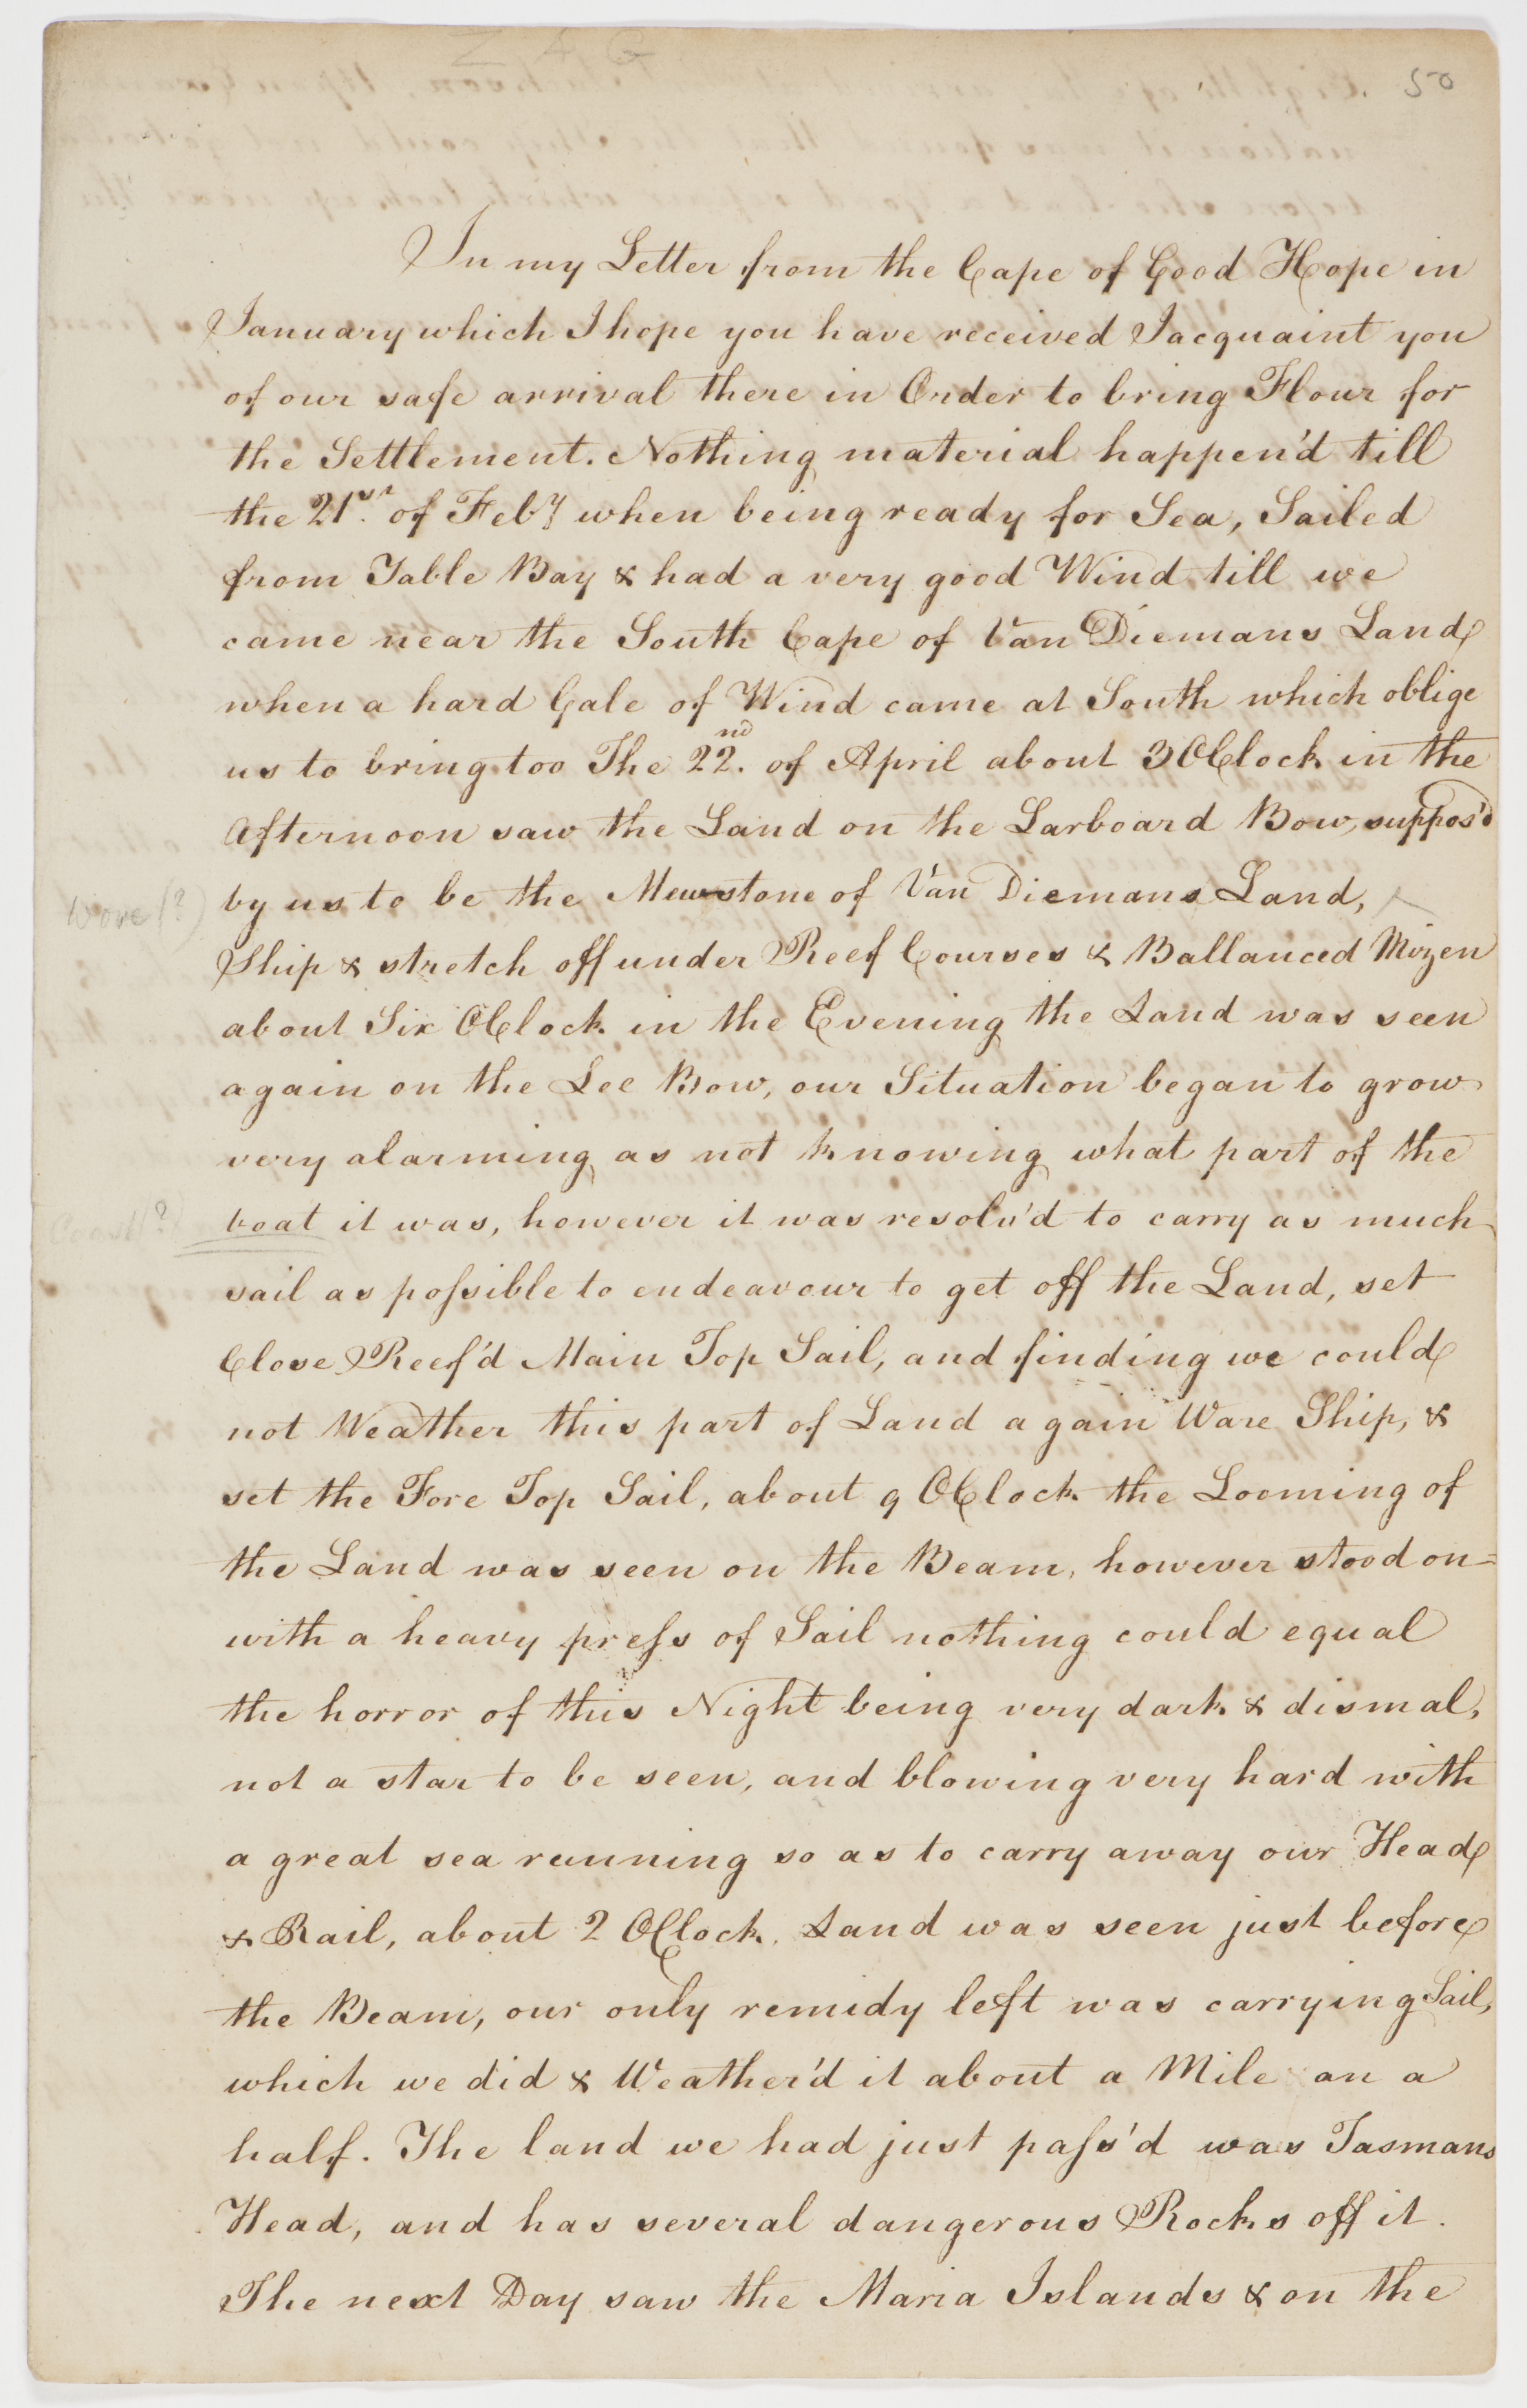 50
In my Letter from the Cape of Good Hope in
January which I hope you have received I acquaint you
of our safe arrival there in Order to bring Flour for
the Settlement. Nothing material happen'd till
the 21st. of Feby when being ready for Sea, Sailed
from Table Bay & had a very good Wind till we
came near the South Cape of Van Diemans Land
when a hard Gale of Wind came at South which oblige
us to bring too The 22nd. of April about 3 OClock in the
Afternoon saw the Land on the Larboard Bow, suppos'd
by us to be the Mewstone of Van Diemans Land,
Wore (?)
Ship & stretch off under Reef Courses & Ballanced Mizen
about Six OClock in the Evening the Land was seen
again on the Lee Bow, our Situation began to grow
very alarming as not knowing what part of the
Coast (?)
boat it was, however it was resolv'd to carry as much
sail as possible to endeavour to get off the Land, set
Close Reef'd Main Top Sail, and finding we could
not Weather this part of Land again Ware Ship, &
set the Fore Top Sail, about 9 OClock the Looming of
the Land was seen on the Beam, however stood on=
with a heavy press of Sail nothing could equal
the horror of this Night being very dark & dismal,
not a star to be seen, and blowing very hard with
a great sea running so as to carry away our Head
& Rail, about 2 OClock. Land was seen just before
the Beam, our only remidy left was carrying Sail,
which we did & Weather'd it about a Mile an a
half. The land we had just pass'd was Tasmans
Head, and has several dangerous Rocks off it.
The next Day saw the Maria Islands & on the